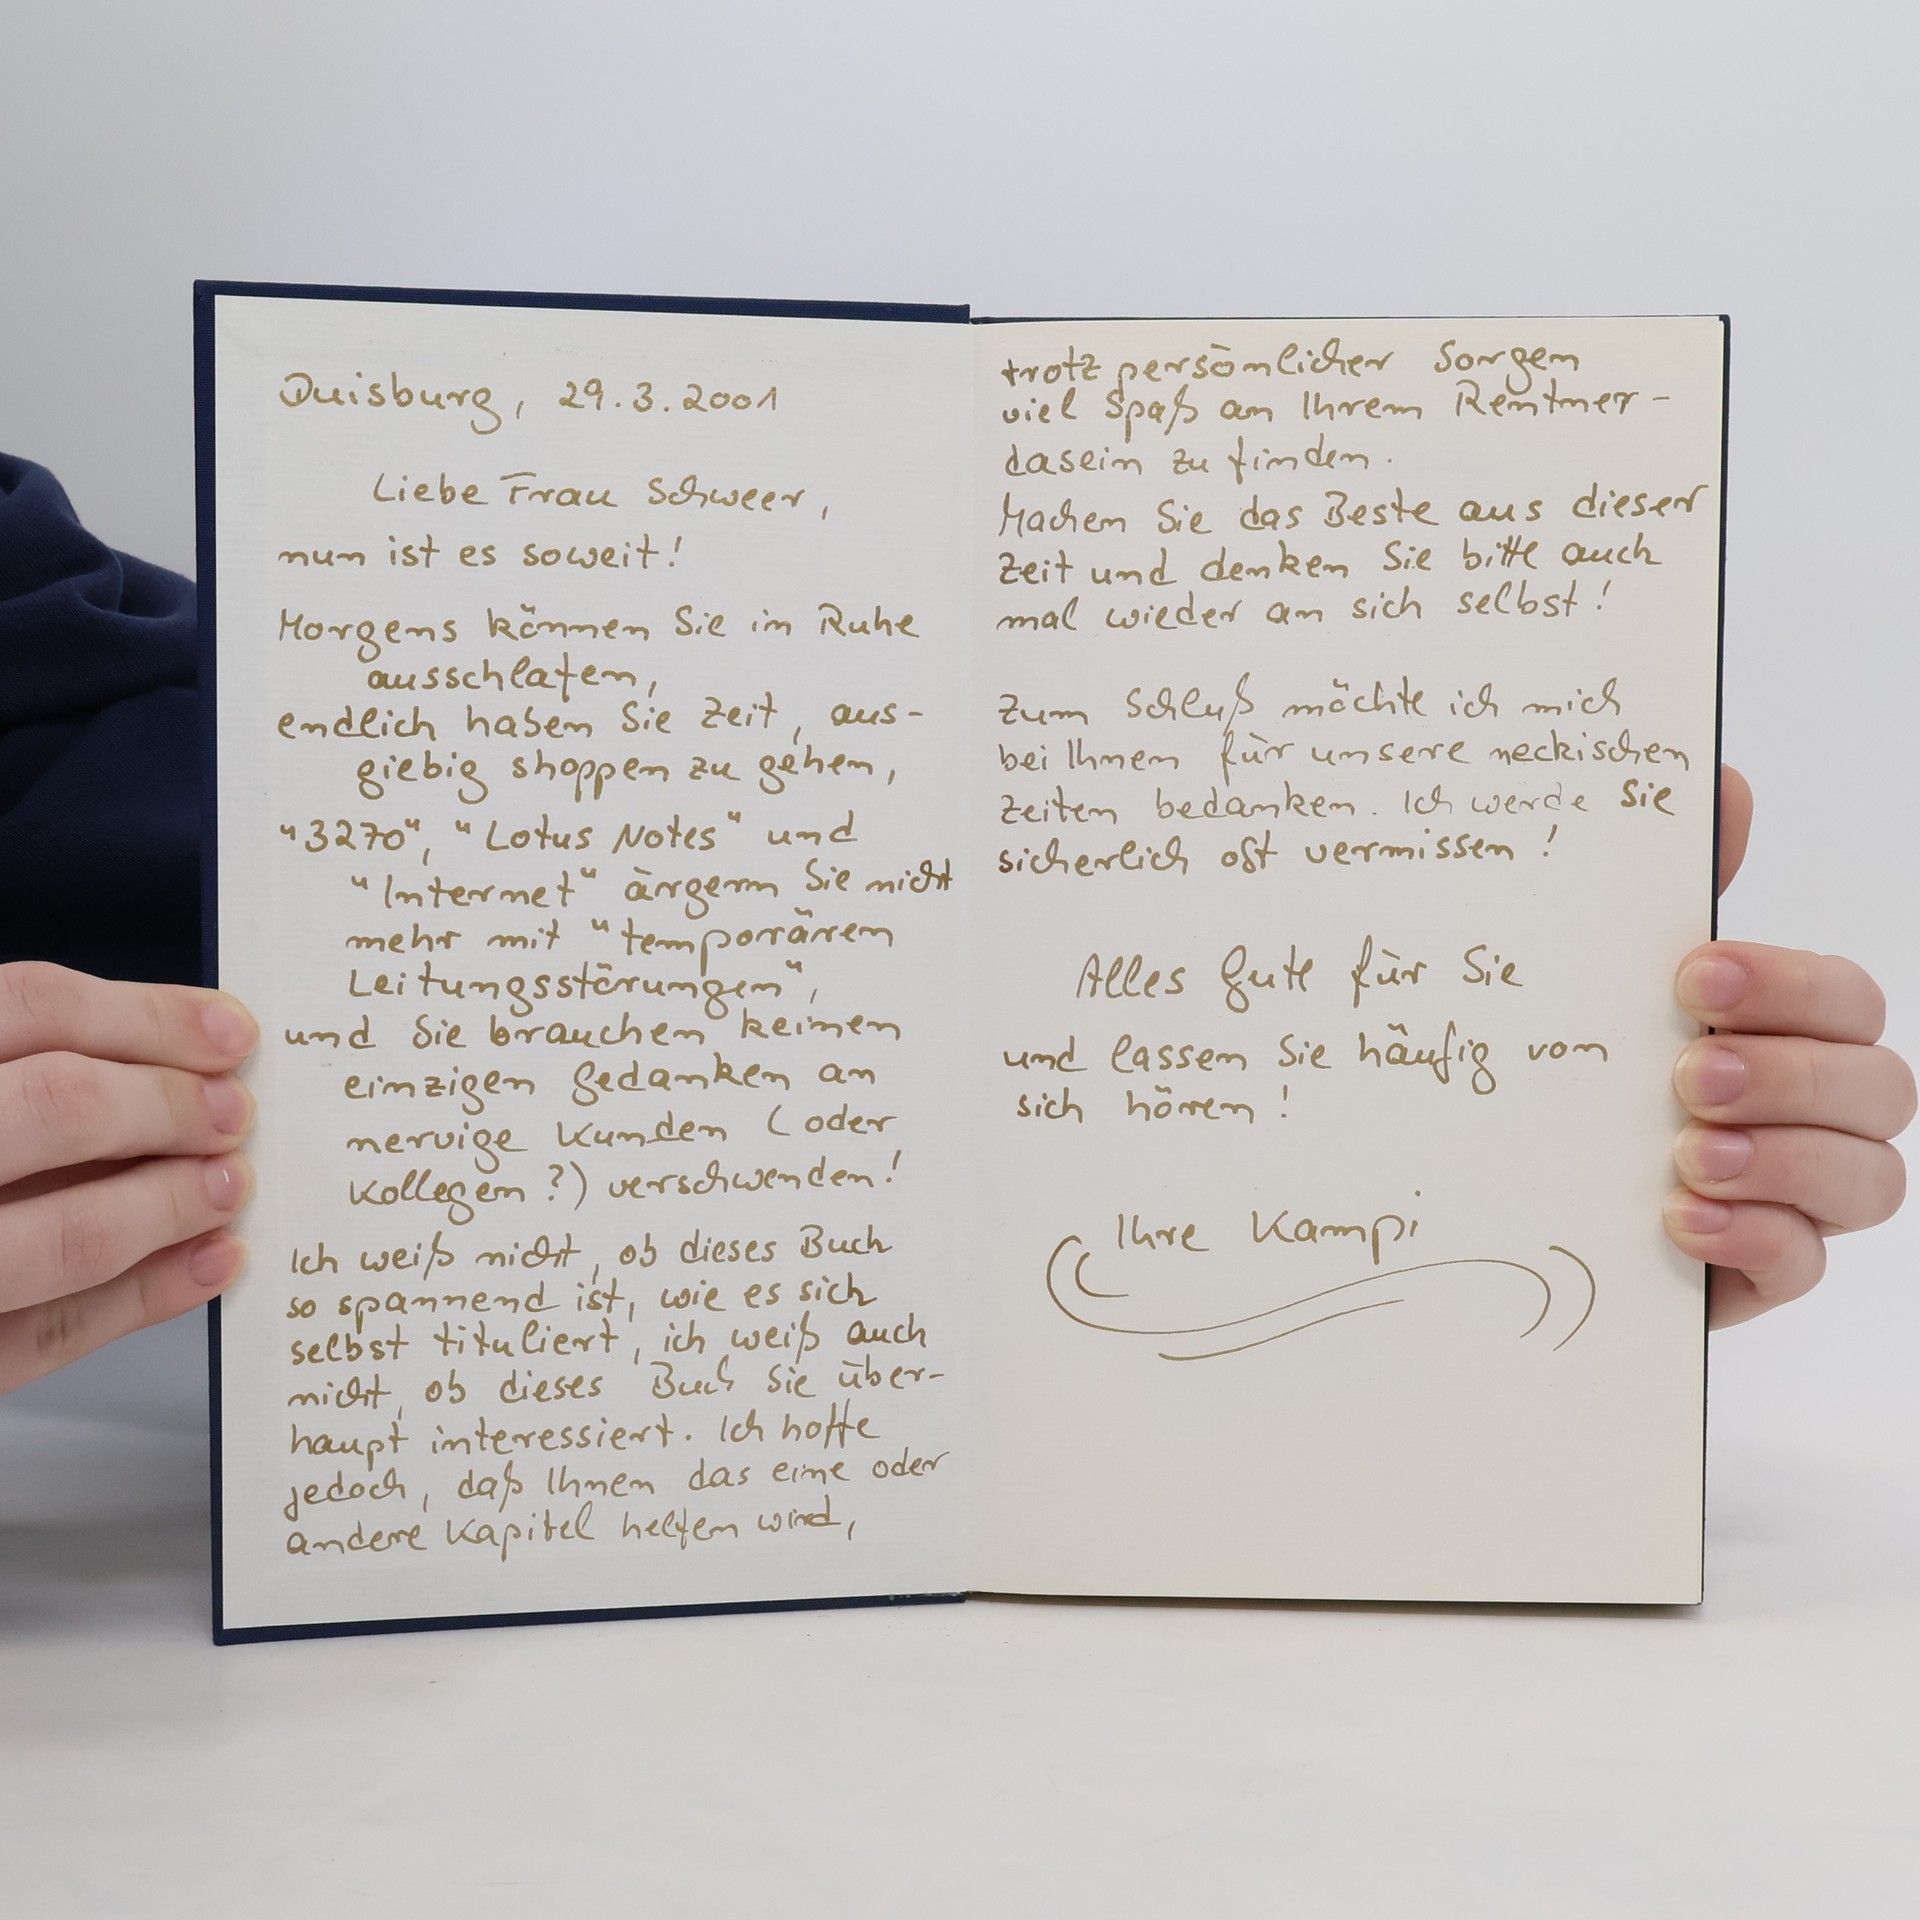 Duisburg, 29.3.2001
Liebe Frau Schweer,
nun ist es soweit!
Morgens können Sie im Ruhe
ausschlafen,
endlich haben Sie Zeit, aus-
giebig shoppen zu gehen,
"3270", "Lotus Notes" und
"Internet" ärgern Sie nicht
mehr mit "temporären
Leitungsstörungen",
und Sie brauchen keinen
einzigen Gedanken an
nervige Kunden (oder
Kollegen?) verschwenden!
Ich weiß nicht, ob dieses Buch
so spannend ist, wie es sich
selbst tituliert, ich weiß auch
nicht, ob dieses Buch Sie über-
haupt interessiert. Ich hoffe
jedoch, daß Ihnen das eine oder
andere Kapitel helfen wird,
trotz persönlicher Sorgen
viel Spaß an Ihrem Rentner-
dasein zu finden.
Machen Sie das Beste aus dieser
Zeit und denken Sie bitte auch
mal wieder an sich selbst!
Zum Schluß möchte ich mich
bei Ihnen für unsere neckischen
Zeiten bedanken. Ich werde Sie
sicherlich oft vermissen!
Alles Gute für Sie
und lassen Sie häufig von
sich hören!
Ihre Kampi